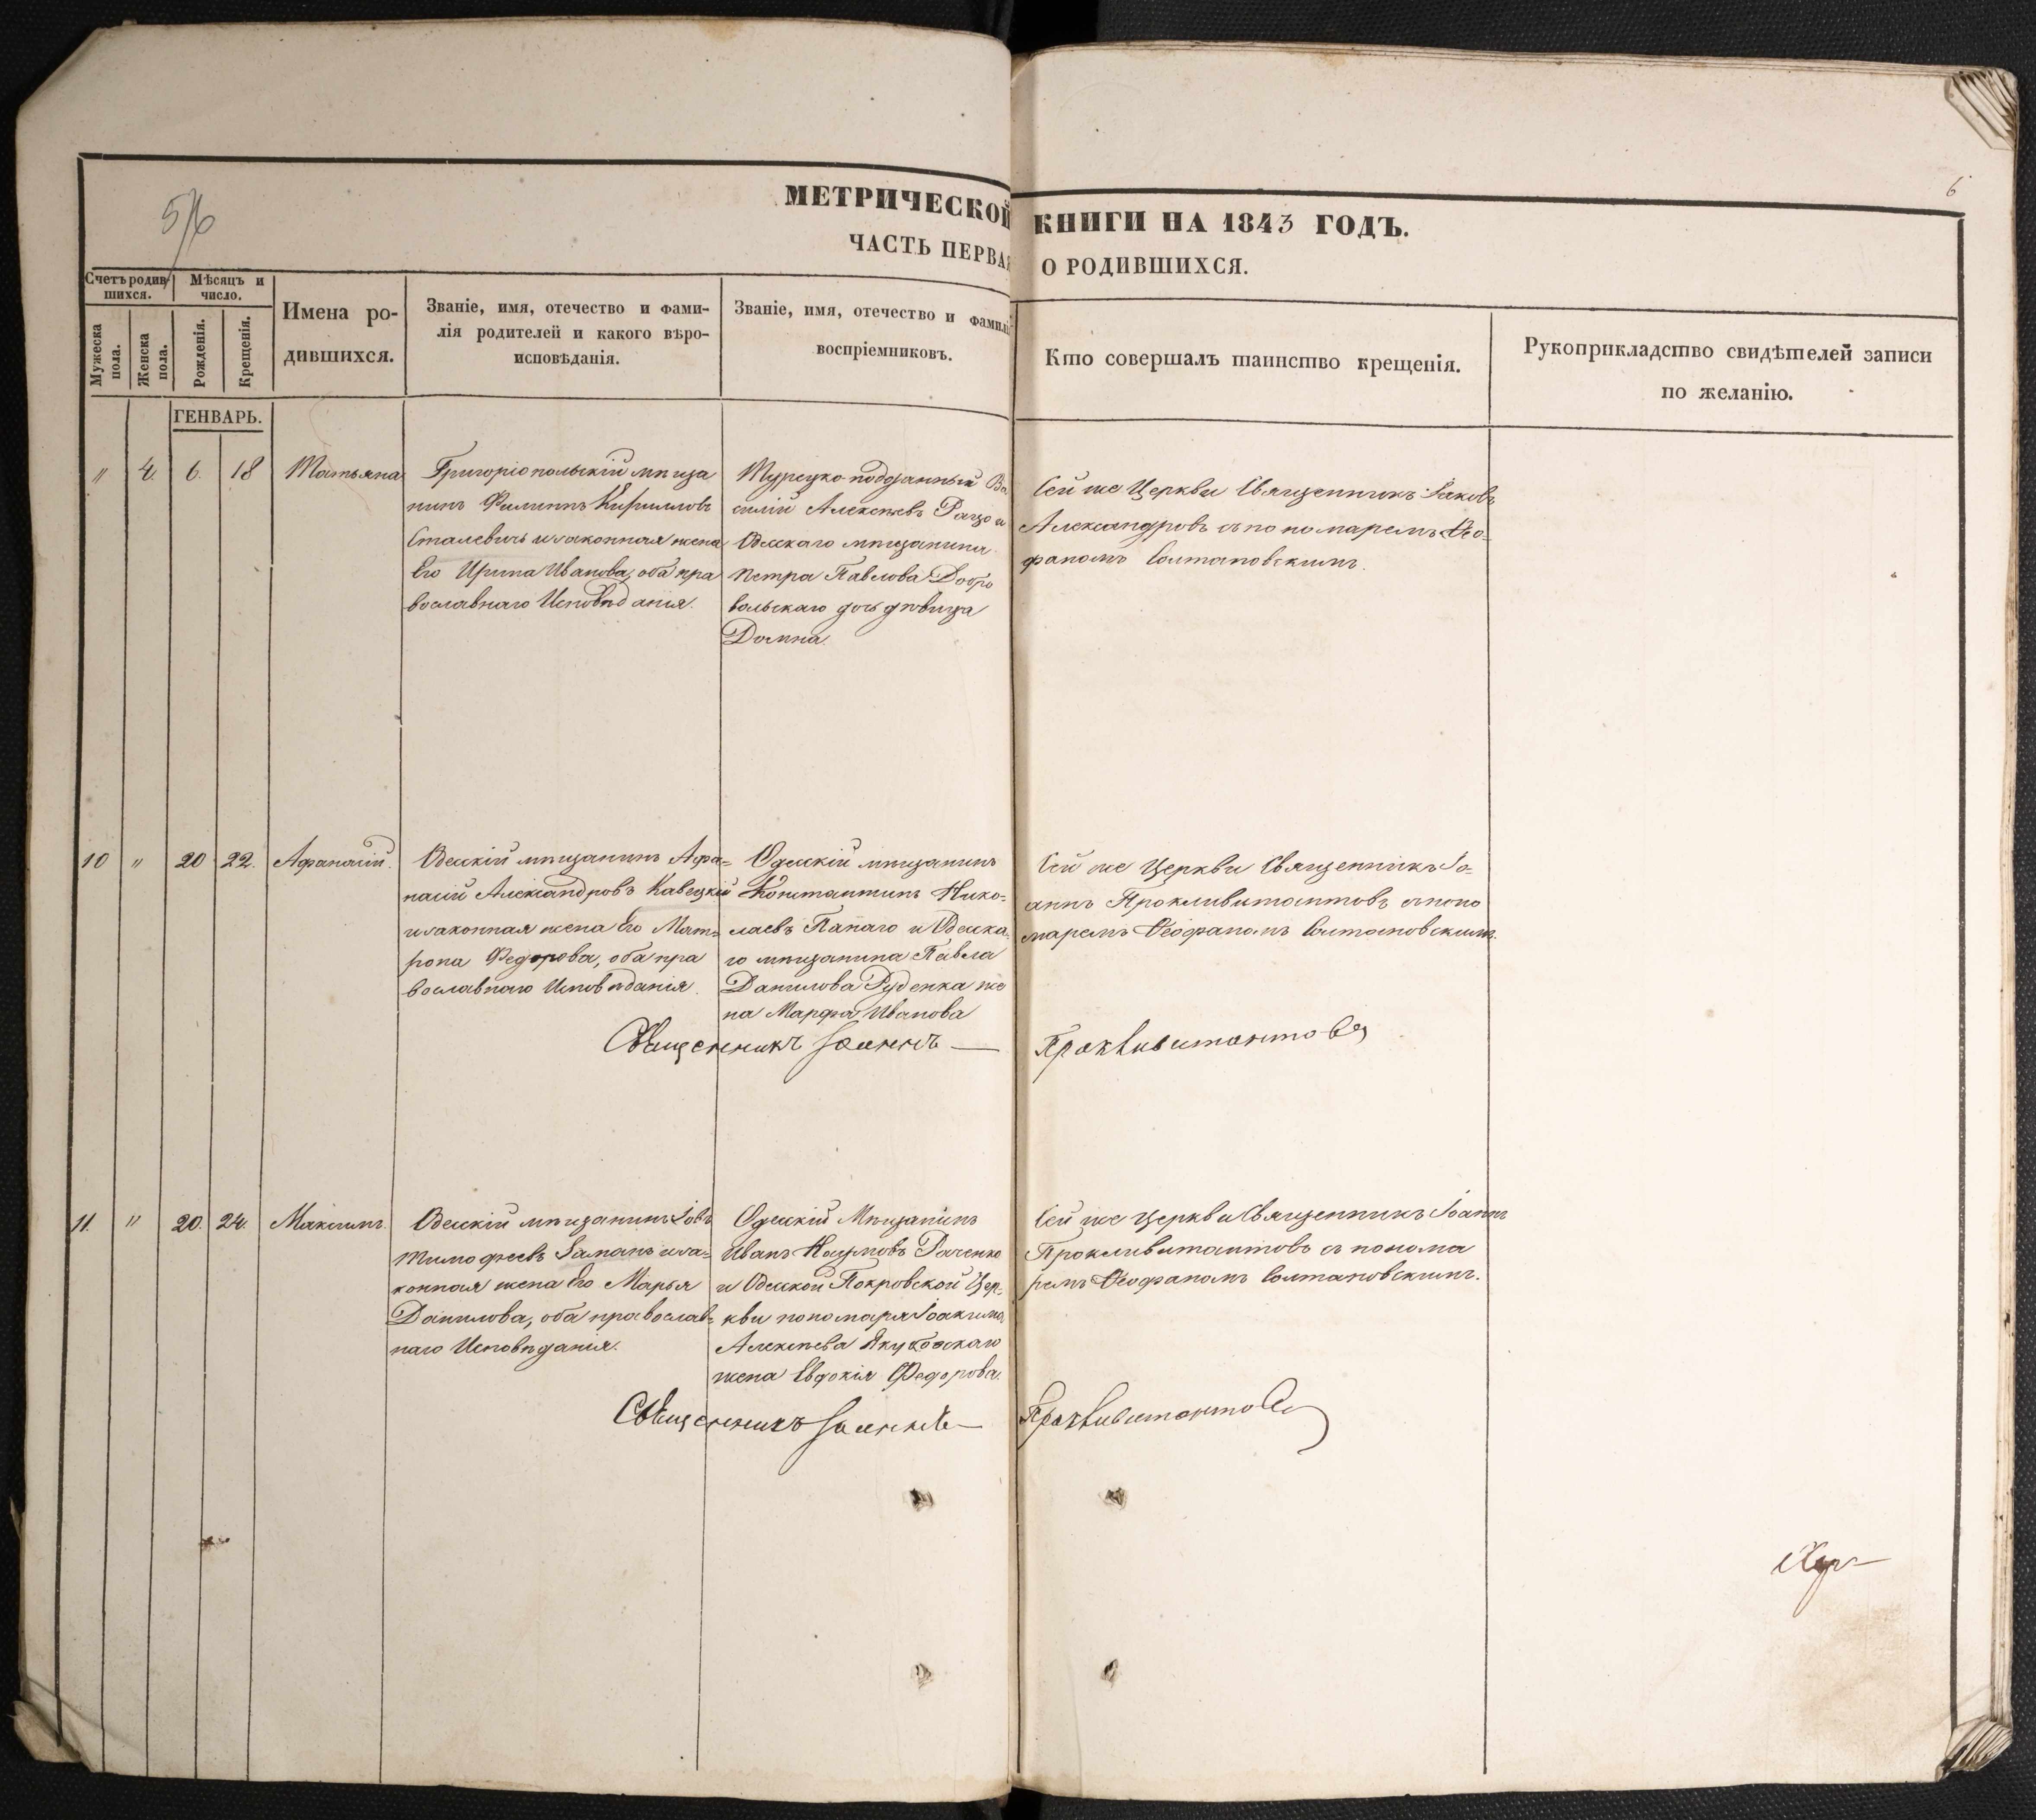 5/6
6
МЕТРИЧЕСКОЙ КНИГИ НА 1843 ГОДЪ.
ЧАСТЬ ПЕРВАЯ О РОДИВШИХСЯ.
Счетъ родив-
шихся.
Мѣсяцъ и
число.
Мужеска
пола.
Женска
пола.
Рожденія.
Крещенія.
Имена ро-
дившихся.
Званіе, имя, отечество и фами-
лія родителей и какого вѣро-
исповѣданія.
Званіе, имя, отечество и фамилія
воспріемниковъ.
Кто совершалъ таинство крещенія.
Рукоприкладство свидѣтелей записи
по желанію.
ГЕНВАРЬ.
" 4. 6. 18 Татьяна
Григоріопольскій мѣща
нинъ Филиппъ Кирилловъ
Сталевичь и законная жена
Его Ирина Иванова, оба пра
вославнаго Исповѣданія.
Турецко-подданный Ва
силій Алексѣевъ Рацо и
Одесскаго мѣщанина
Петра Павлова Добро
вольскаго дочь дѣвица
Домна.
Сей же Церкви Священникъ Іаковъ
Александровъ съ пономаремъ Ѳео-
фаномъ Солтановскимъ.
10 " 20 22. Афанасій.
Одесскій мѣщанинъ Афа-
насій Александровъ Кавецкій
и законная жена Его Мат-
рона Федорова, оба пра
вославнаго Исповѣданія.
Одесскій мѣщанинъ
Константинъ Нико-
лаевъ Папаго и Одесска-
го мѣщанина Павла
Данилова Руденка же
на Марфа Иванова
Сей же Церкви Священникъ Іо-
аннъ Прокливитантовъ съ поно
маремъ Ѳеофаномъ Солтановскимъ.
Священникъ Іоаннъ — Прокливитантовъ
11. " 20. 24. Максимъ.
Одесскій мѣщанинъ Іовъ
Тимофеевъ Заманъ и за-
конная жена Его Марья
Данилова, оба православ-
наго Исповѣданія.
Одесскій Мѣщанинъ
Иванъ Наумовъ Раченко
и Одесской Покровской Цер-
кви пономаря Іоакима
Алексѣева Якубовскаго
жена Евдокія Федорова.
Сей же Церкви Священникъ Іоаннъ
Прокливитантовъ съ понома
ремъ Ѳеофаномъ Солтановскимъ.
Священникъ Іоаннъ — Прокливитантовъ